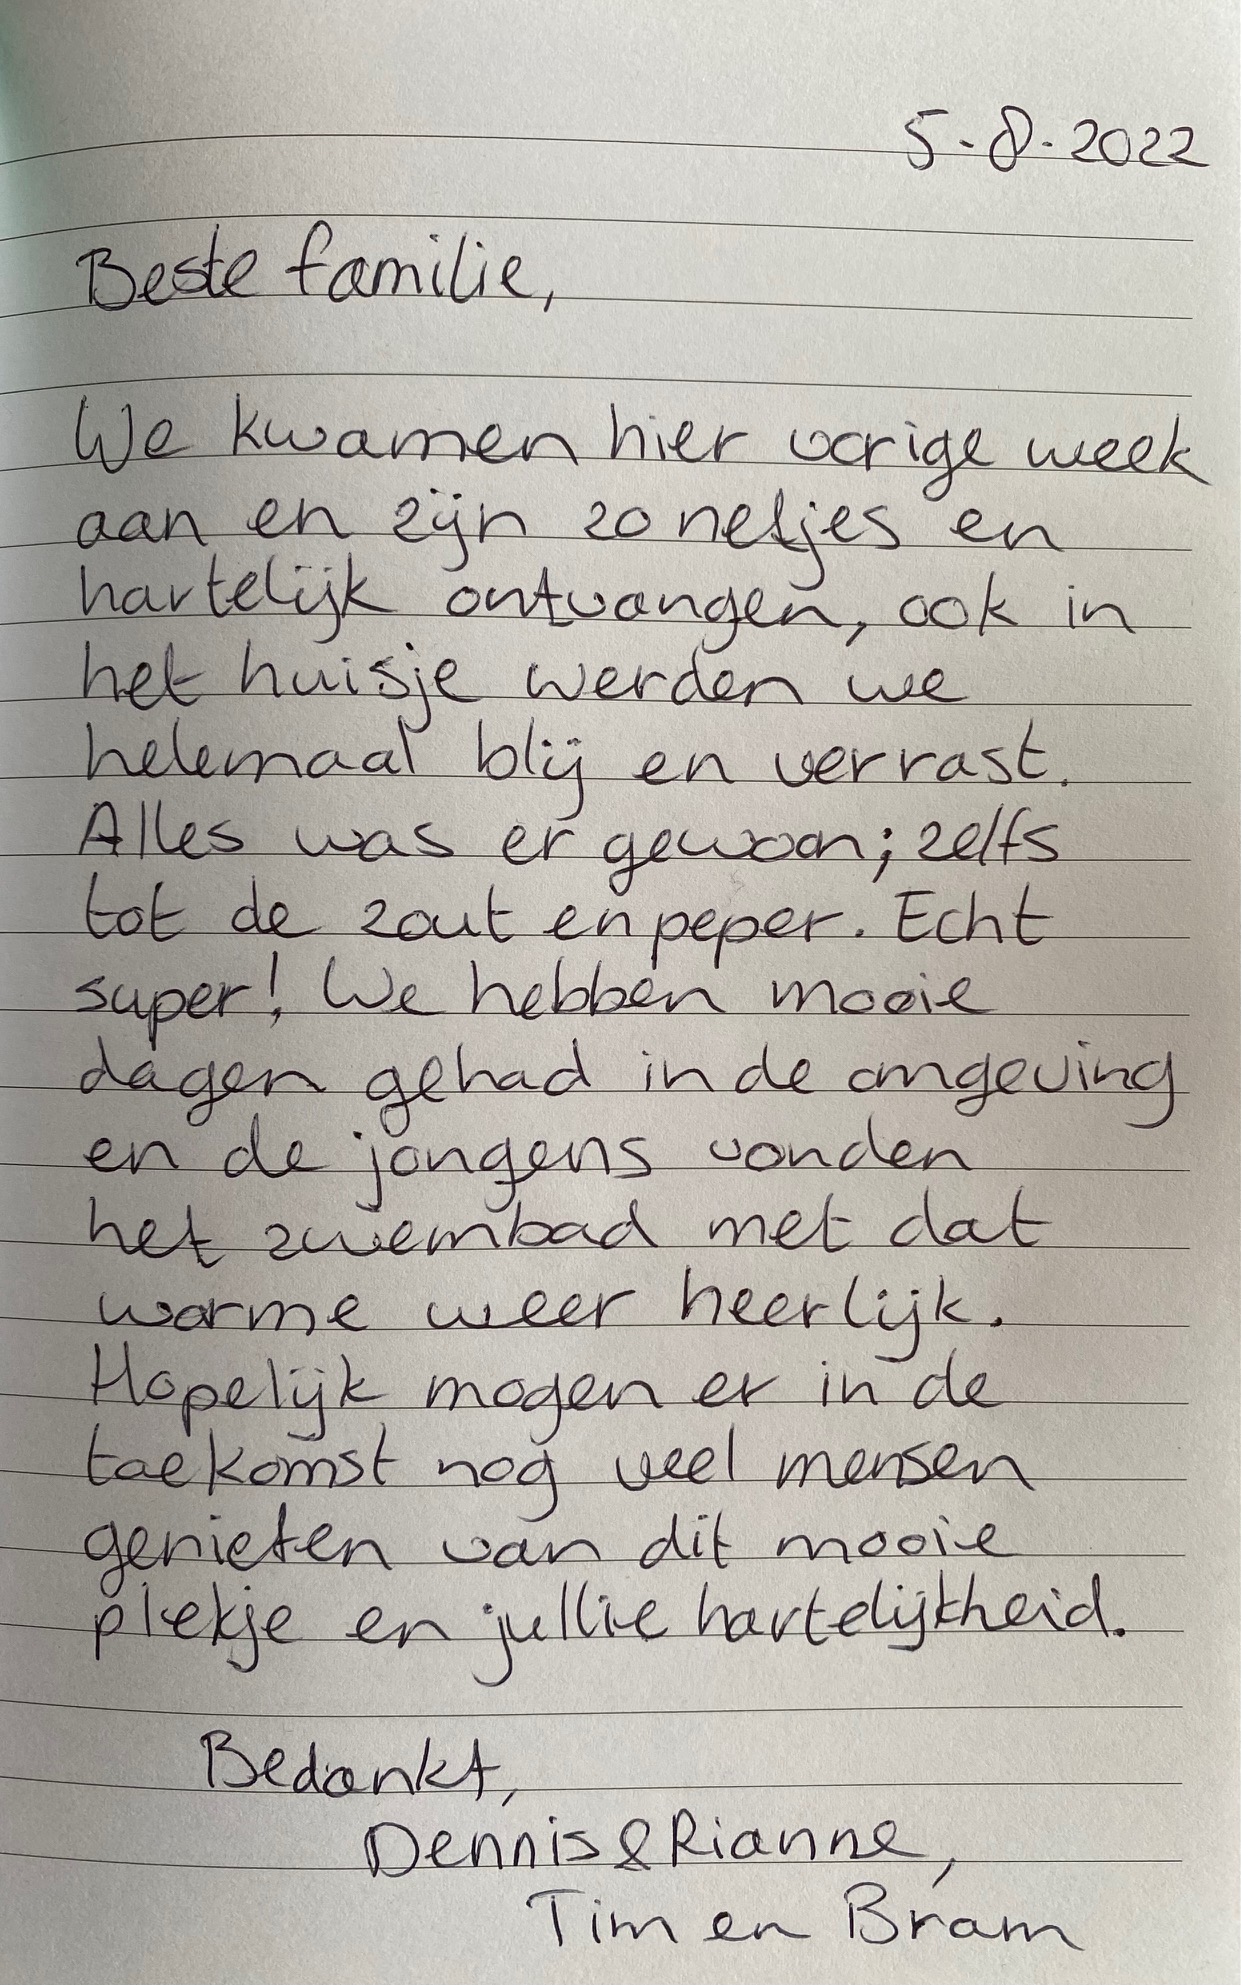 5-8-2022
Beste familie,
We kwamen hier vorige week
aan en zijn zo netjes en
hartelijk ontvangen, ook in
het huisje werden we
helemaal blij en verrast.
Alles was er gewoon; zelfs
tot de zout en peper. Echt
super! We hebben mooie
dagen gehad in de omgeving
en de jongens vonden
het zwembad met dat
warme weer heerlijk.
Hopelijk mogen er in de
toekomst nog veel mensen
genieten van dit mooie
plekje en jullie hartelijkheid.
Bedankt,
Dennis & Rianne,
Tim en Bram